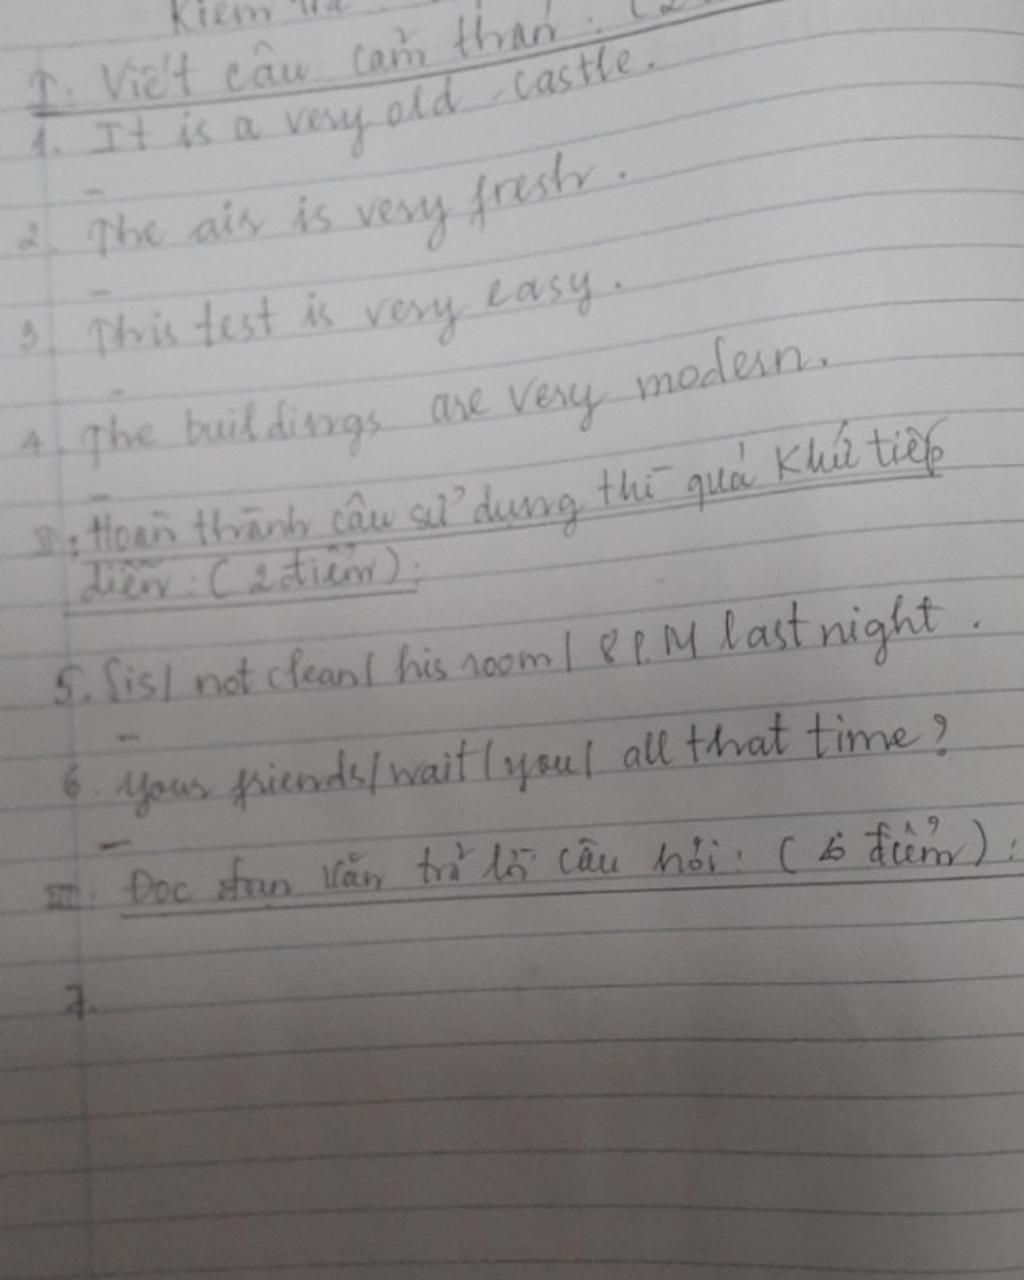 Kiểm tra
I. Viết câu cảm thán: (2
1. It is a very old castle.
-
2. The air is very fresh.
-
3. This test is very easy.
-
4. The buildings are very modern.
-
II: Hoàn thành câu sử dụng thì quá khứ tiếp
diễn: (2 điểm):
5. Sis/ not clean/ his room/ 8 P.M last night.
-
6. Your friends/ wait/ you/ all that time?
-
III. Đọc đoạn văn trả lời câu hỏi: ( điểm):
7.